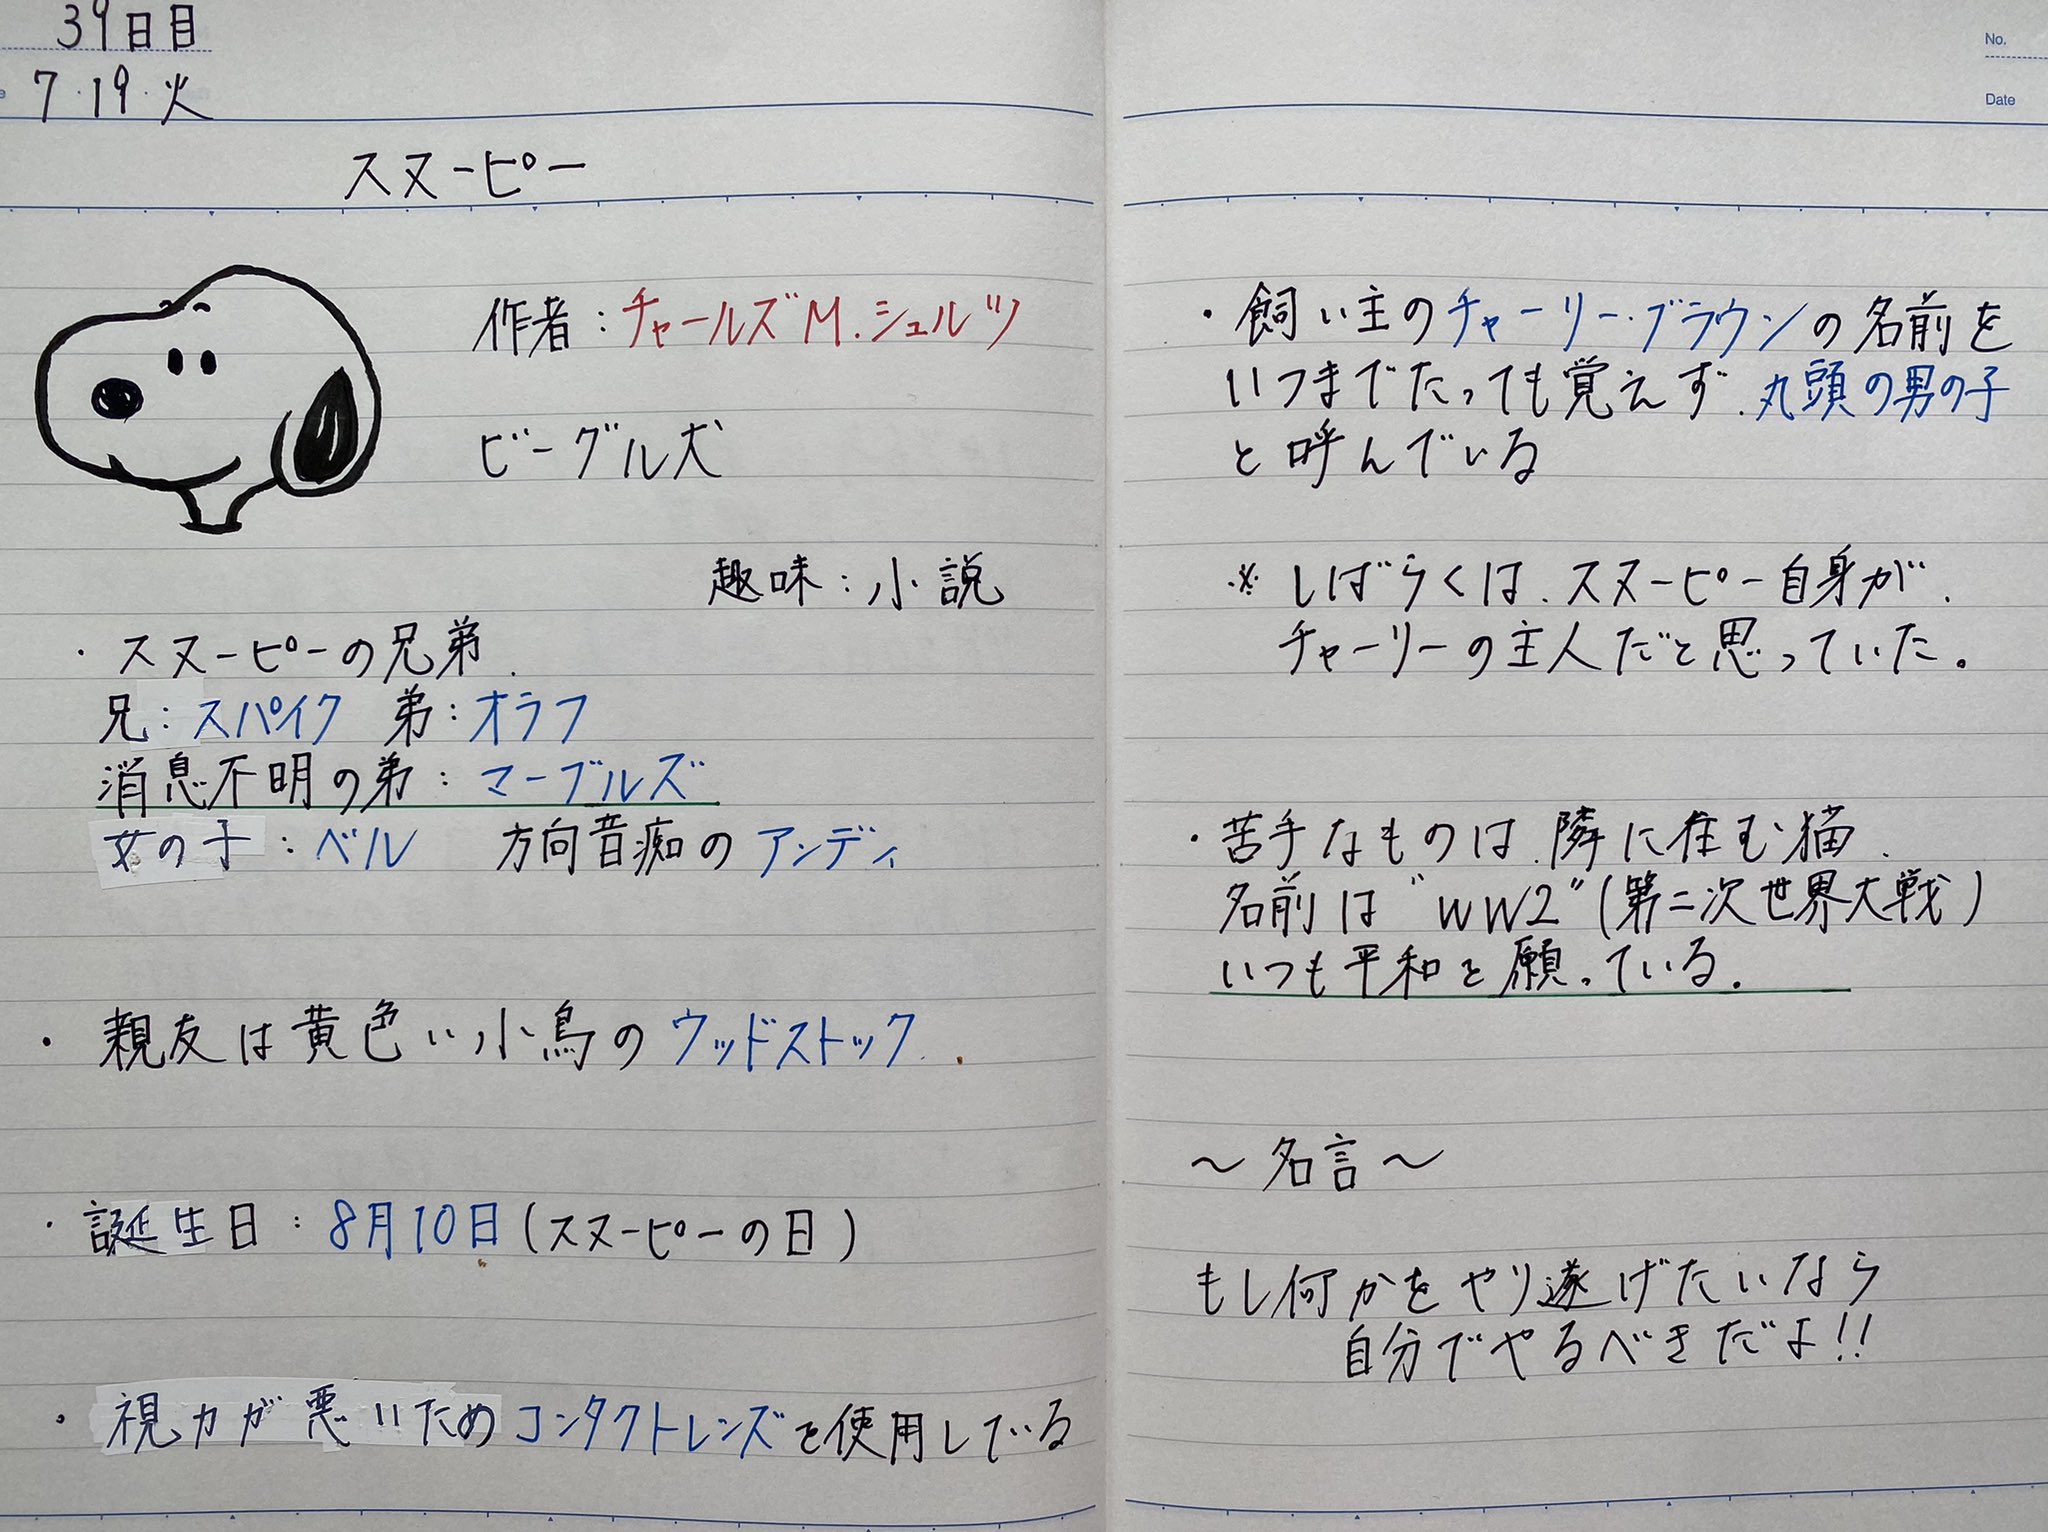 39日目
7・19・火
スヌーピー
作者：チャールズM.シュルツ
ビーグル犬
趣味：小説
・スヌーピーの兄弟.
兄：スパイク 弟：オラフ
消息不明の弟：マーブルズ
女の子：ベル 方向音痴のアンディ
・親友は黄色い小鳥のウッドストック.
・誕生日：8月10日(スヌーピーの日)
・視力が悪いためコンタクトレンズを使用している
No.
Date
・飼い主のチャーリー・ブラウンの名前を
いつまでたっても覚えず、丸頭の男の子
と呼んでいる
※しばらくは、スヌーピー自身が、
チャーリーの主人だと思っていた。
・苦手なものは、隣に住む猫、
名前は"WW2"(第二次世界大戦)
いつも平和を願っている。
〜名言〜
もし何かをやり遂げたいなら
自分でやるべきだよ!!